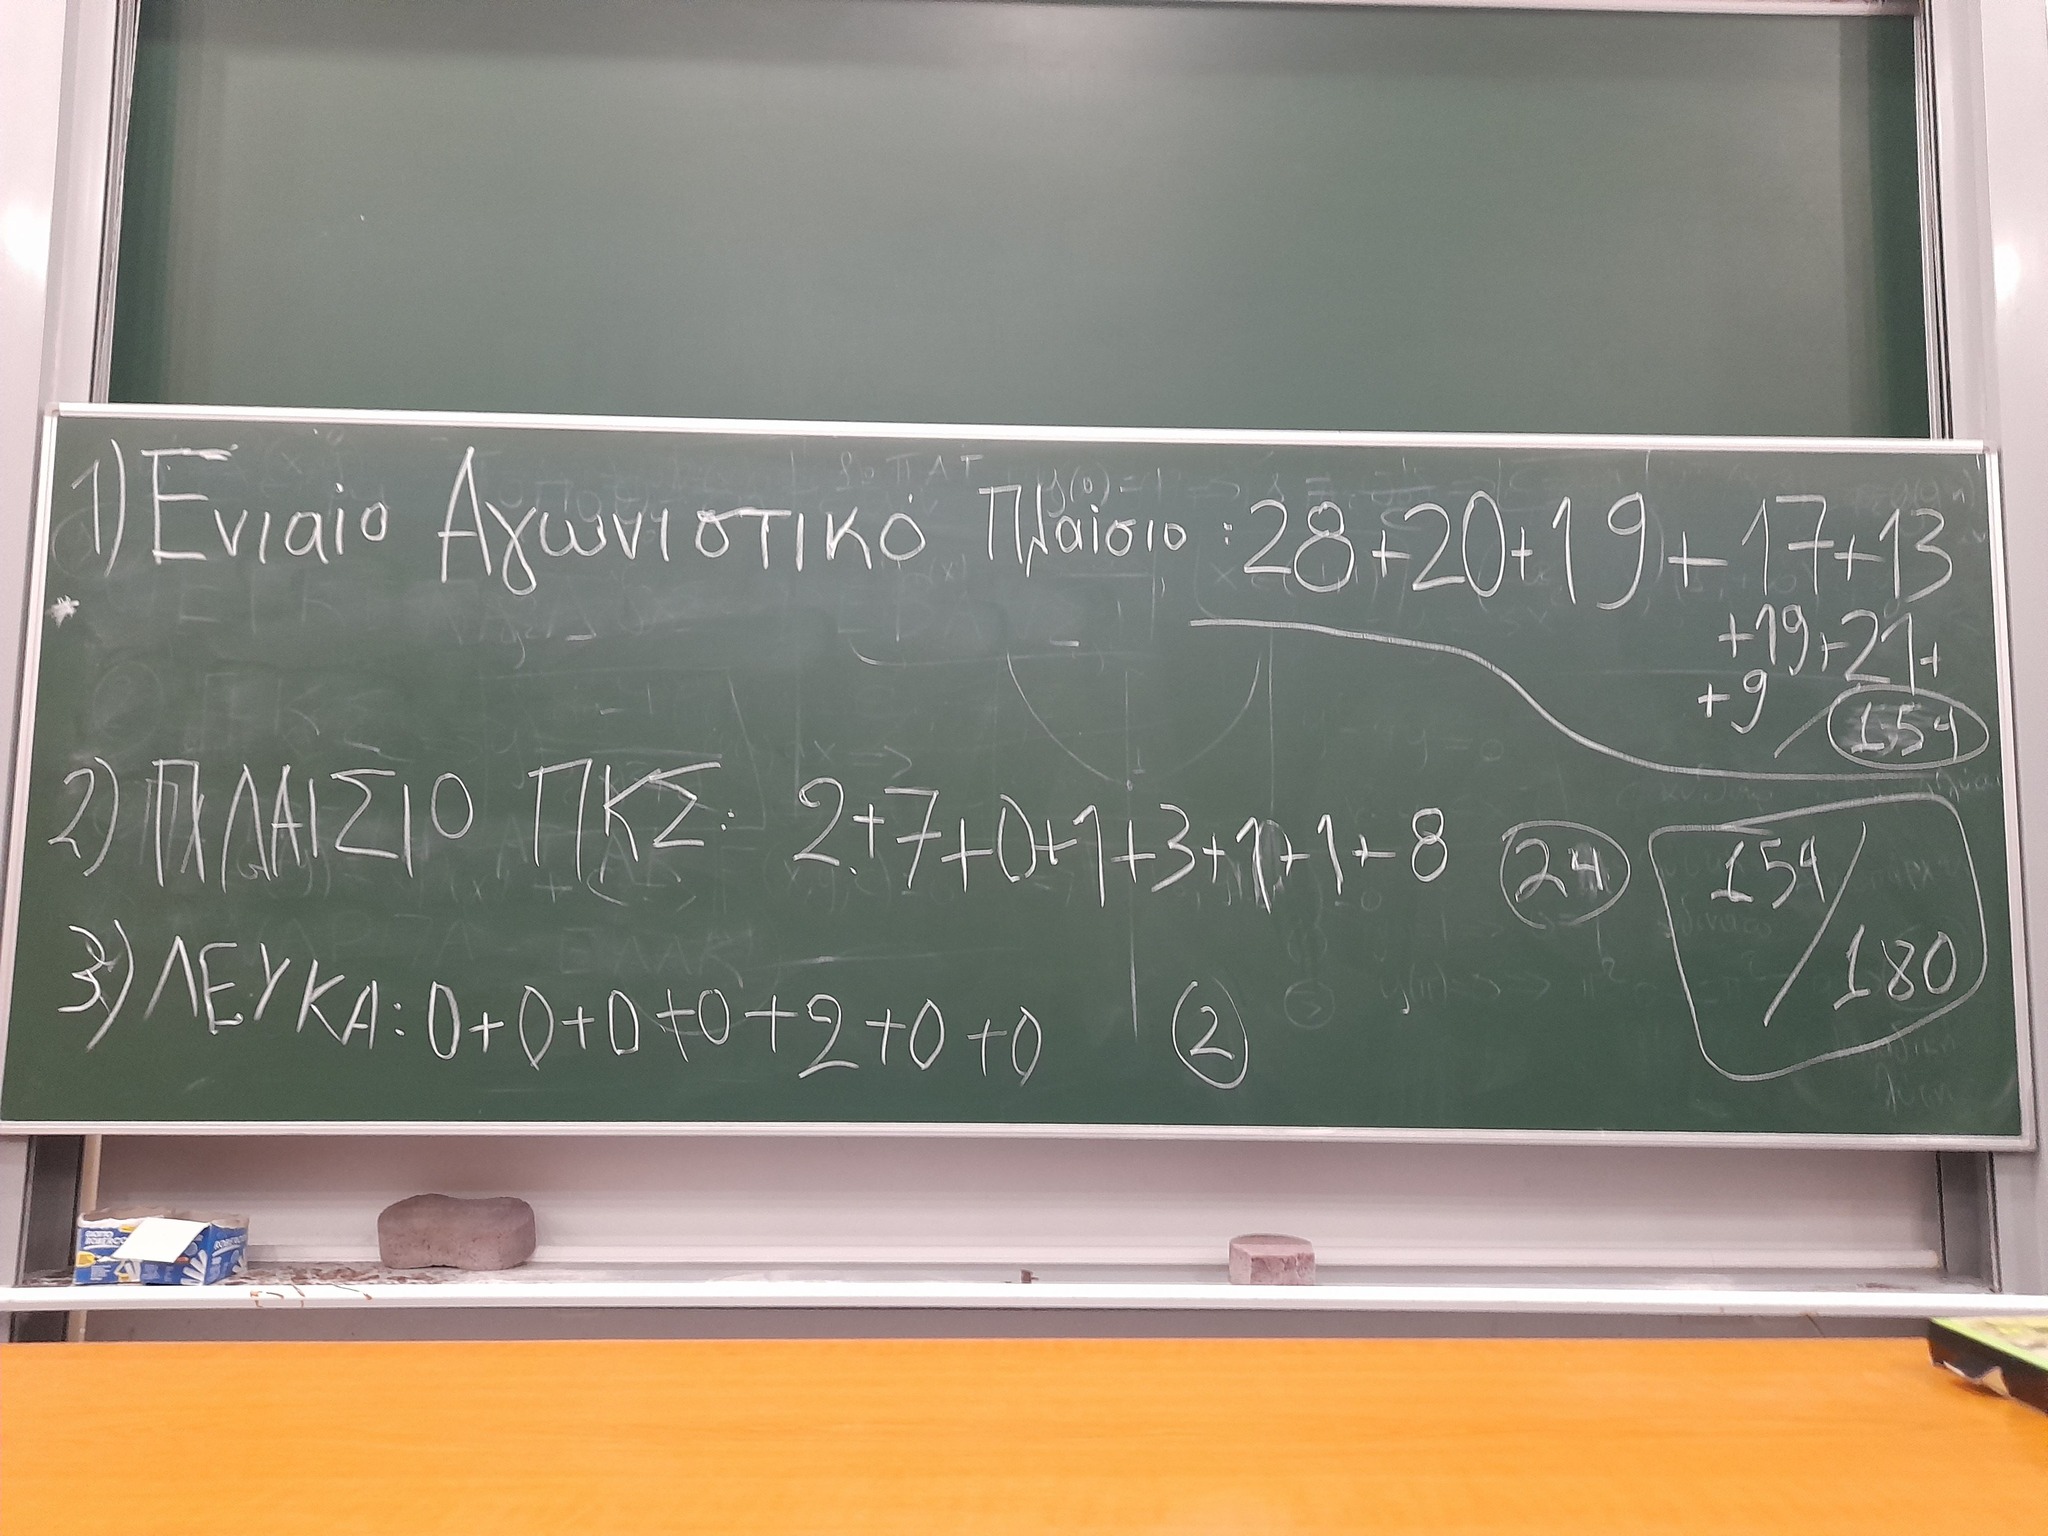 1) Ενιαίο Αγωνιστικό Πλαίσιο: 28+20+19+17+13
+19+21+
+9 154
2) ΠΛΑΙΣΙΟ ΠΚΣ: 2+7+0+1+3+1+1+8 24
154/180
3) ΛΕΥΚΑ: 0+0+0+0+2+0+0 2